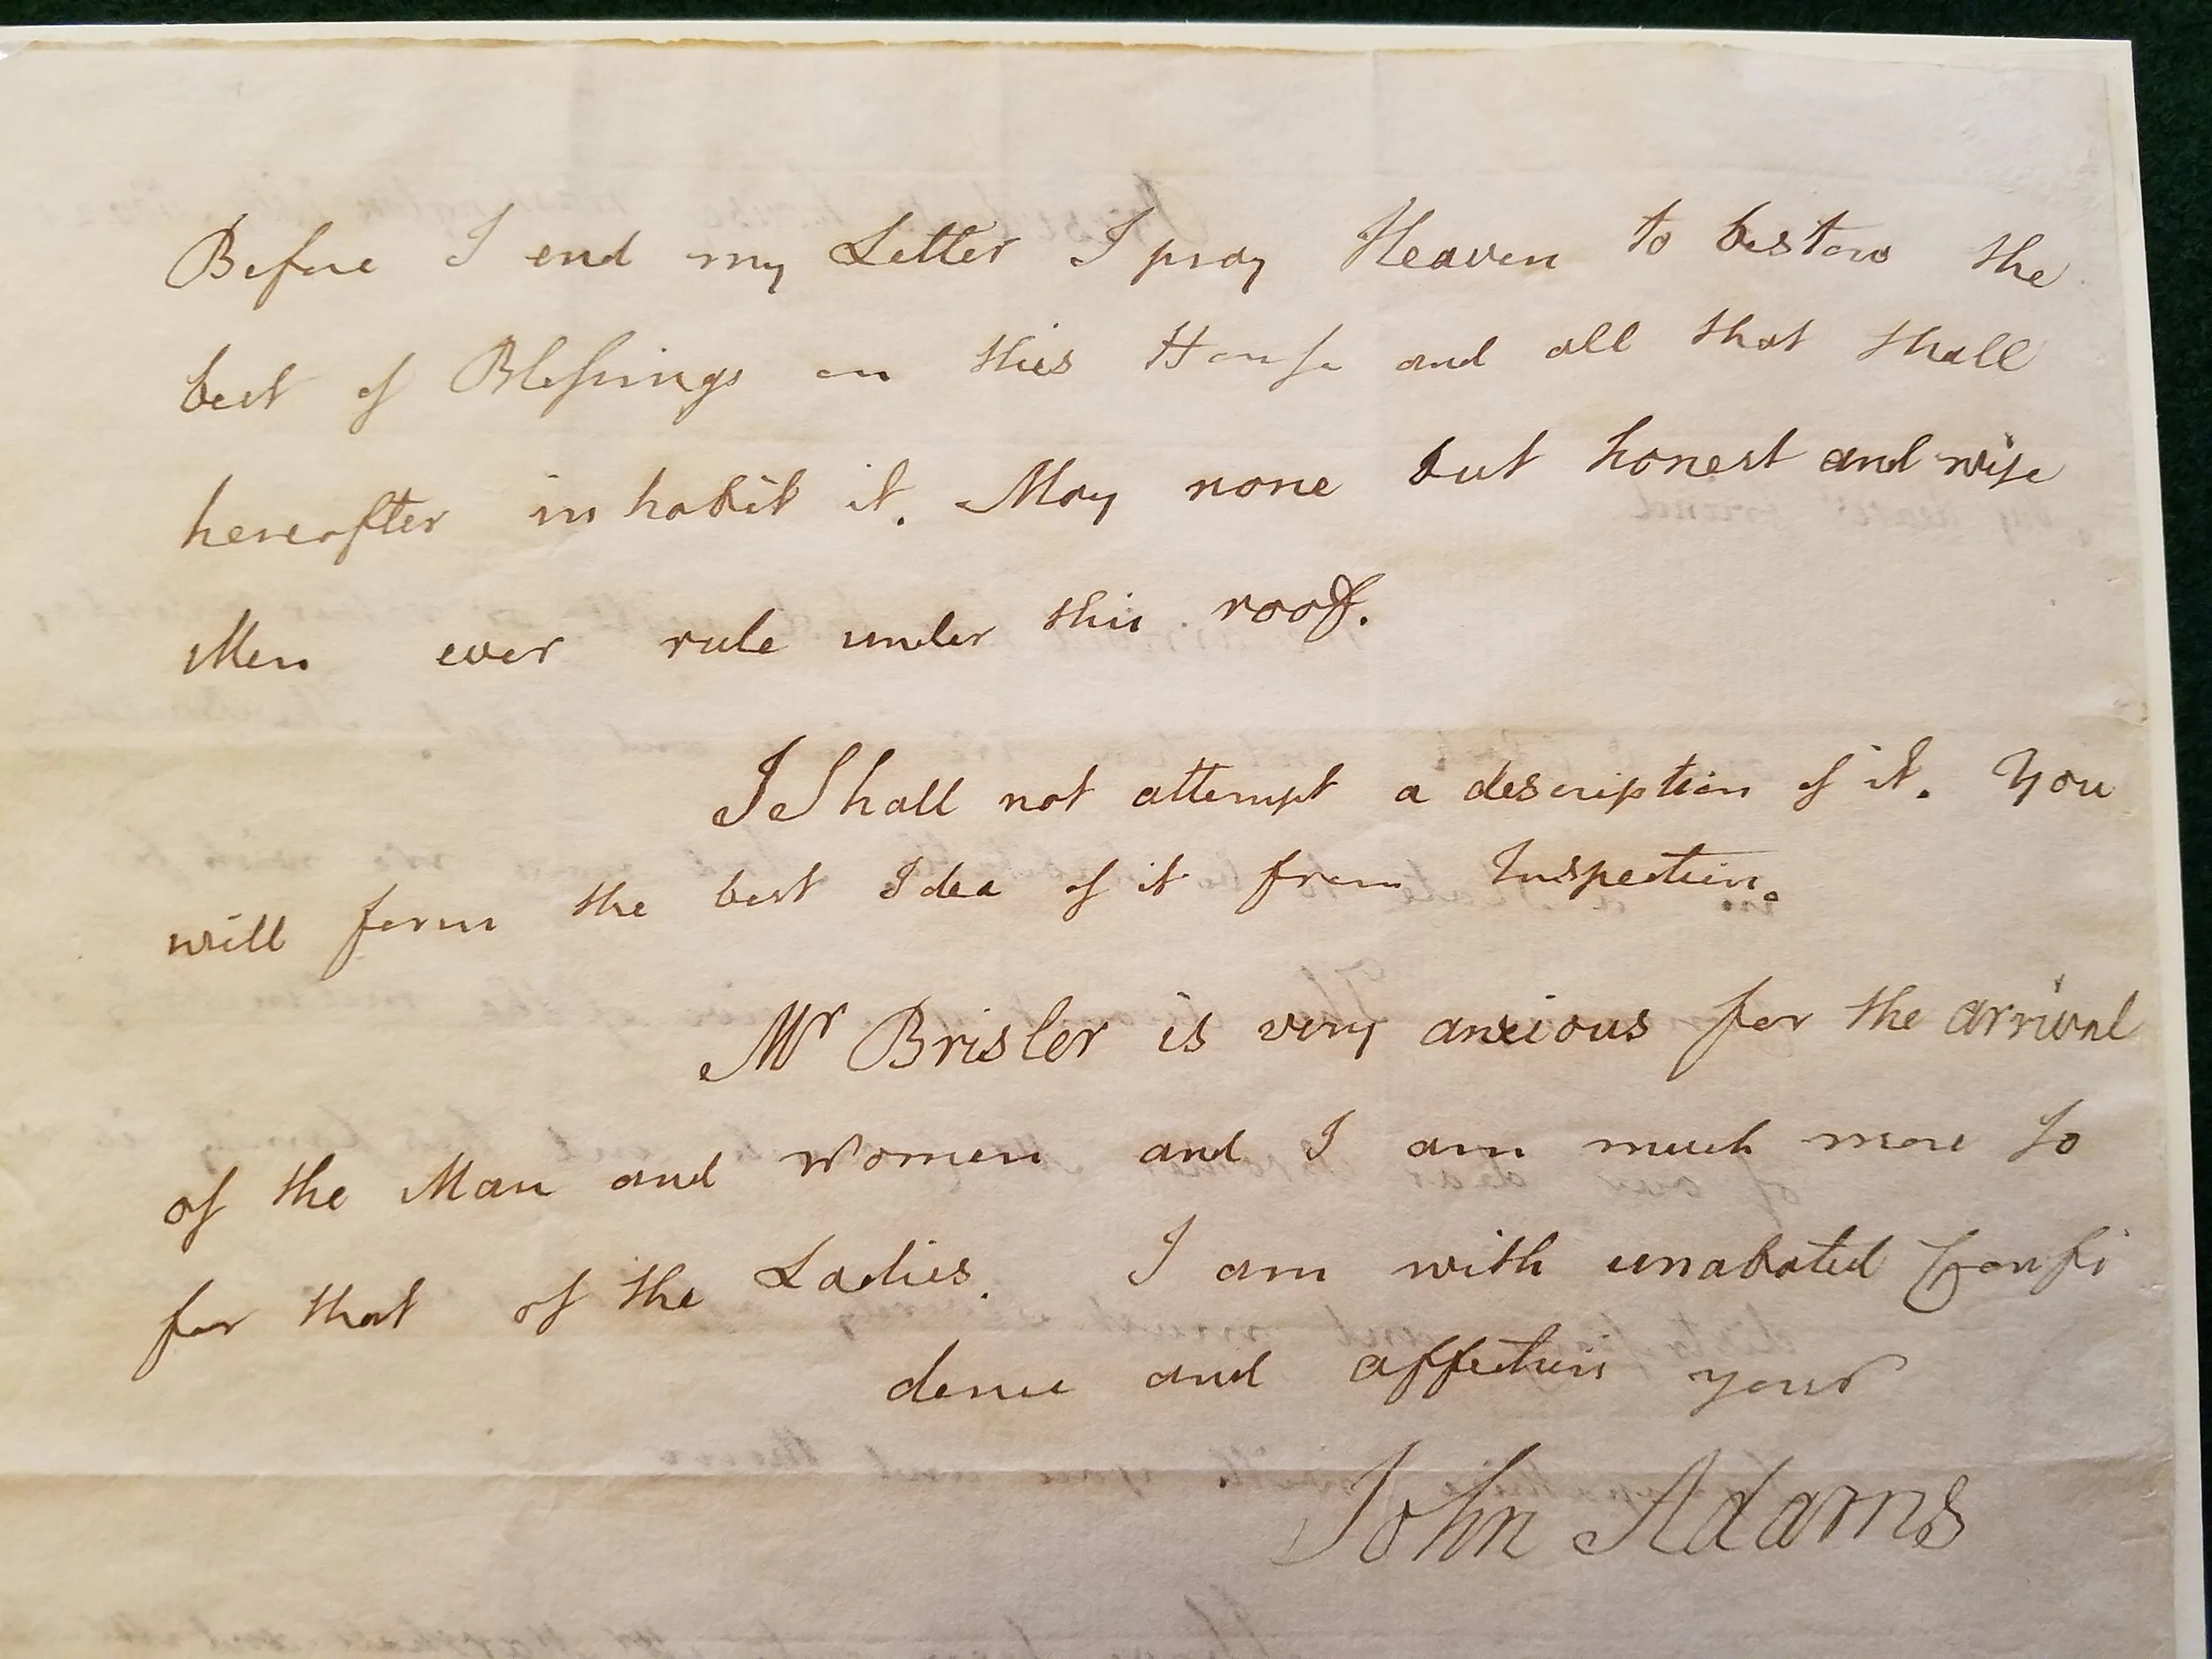 Before I end my Letter I pray Heaven to bestow the
best of Blessings on this House and all that shall
hereafter inhabit it. May none but honest and wise
Men ever rule under this roof.
I Shall not attempt a description of it. You
will form the best Idea of it from Inspection.
Mr Brisler is very anxious for the arrival
of the Man and Women and I am much more so
for that of the Ladies. I am with unabated Confi
dence and affection your
John Adams